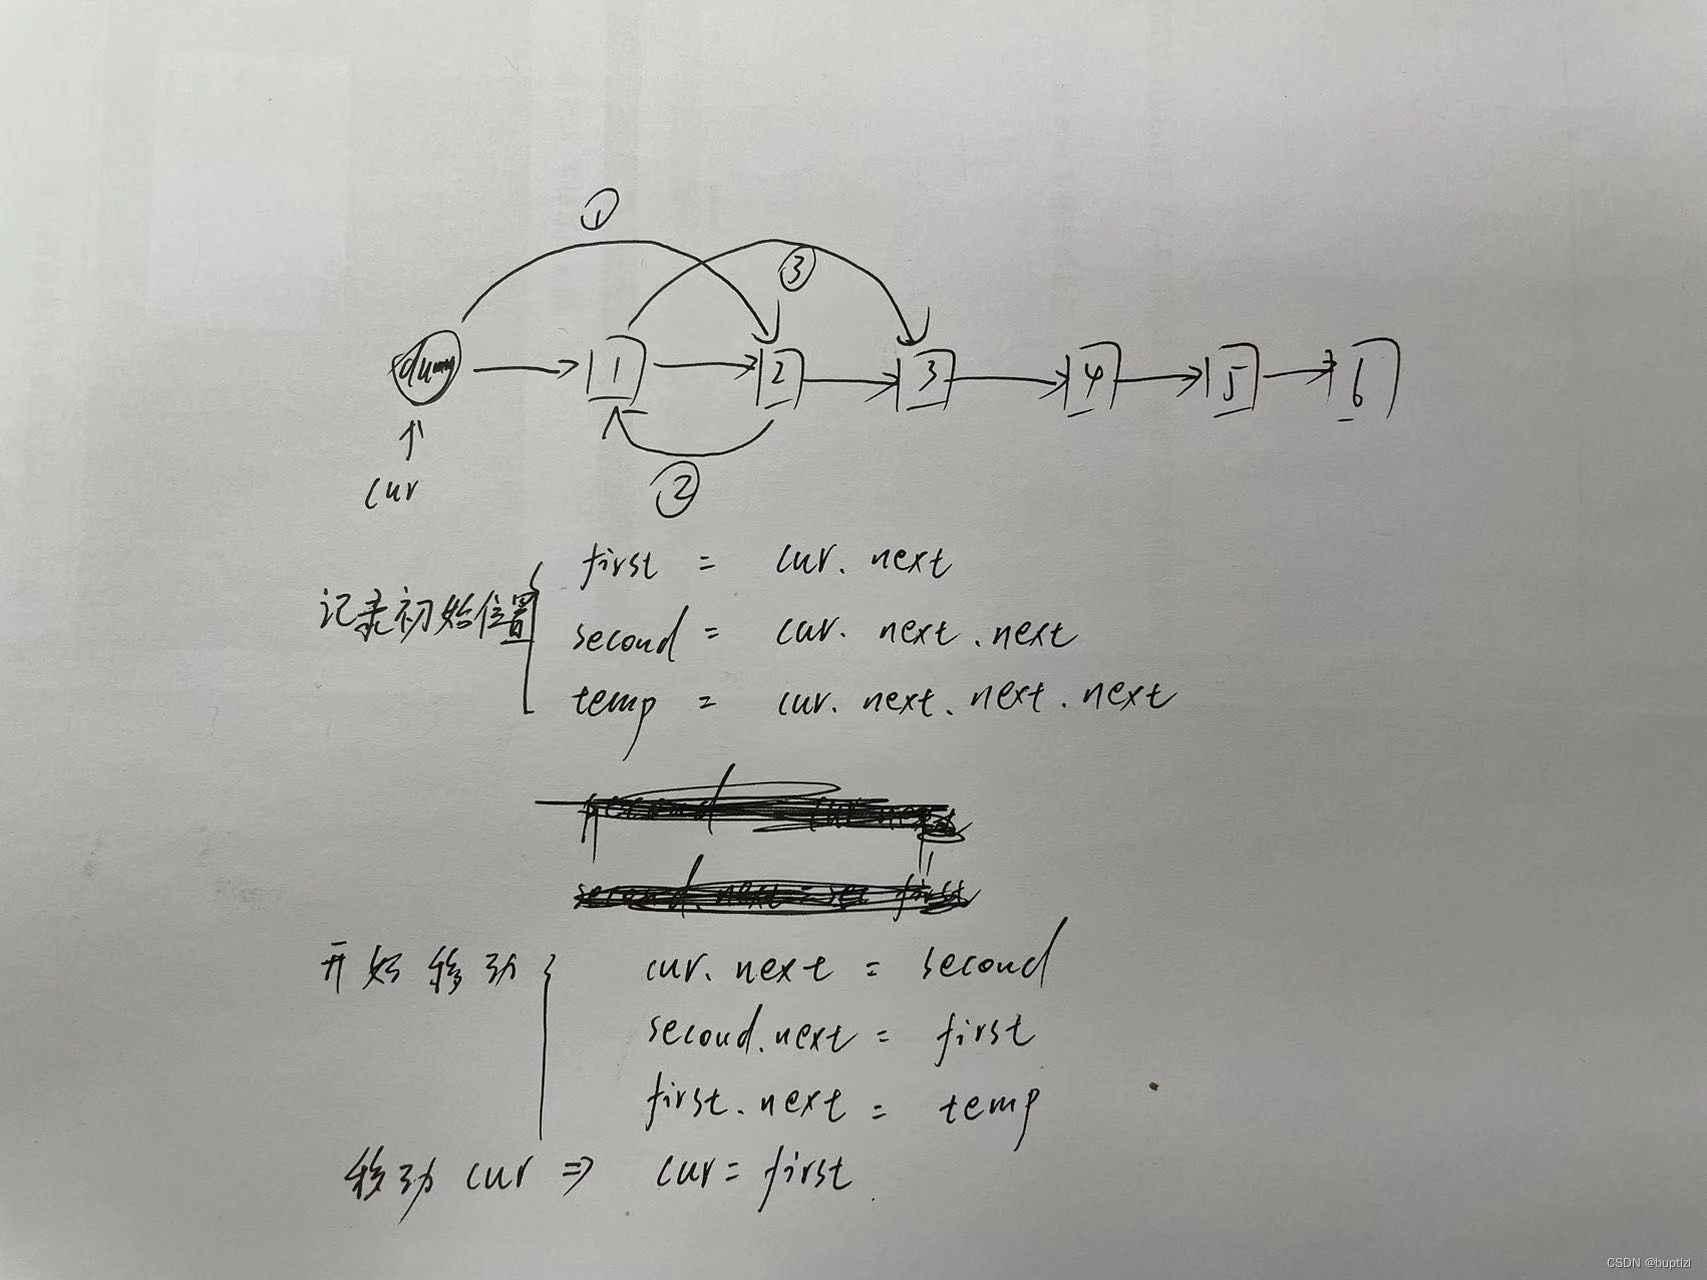 ①
③
dum → 1 → 2 → 3 → 4 → 5 → 6
cur
②
first = cur. next
记录初始位置
second = cur. next . next
temp = cur. next . next . next
开始移动
cur. next = second
second. next = first
first. next = temp
移动 cur ⇒ cur = first
CSDN @buptlzl